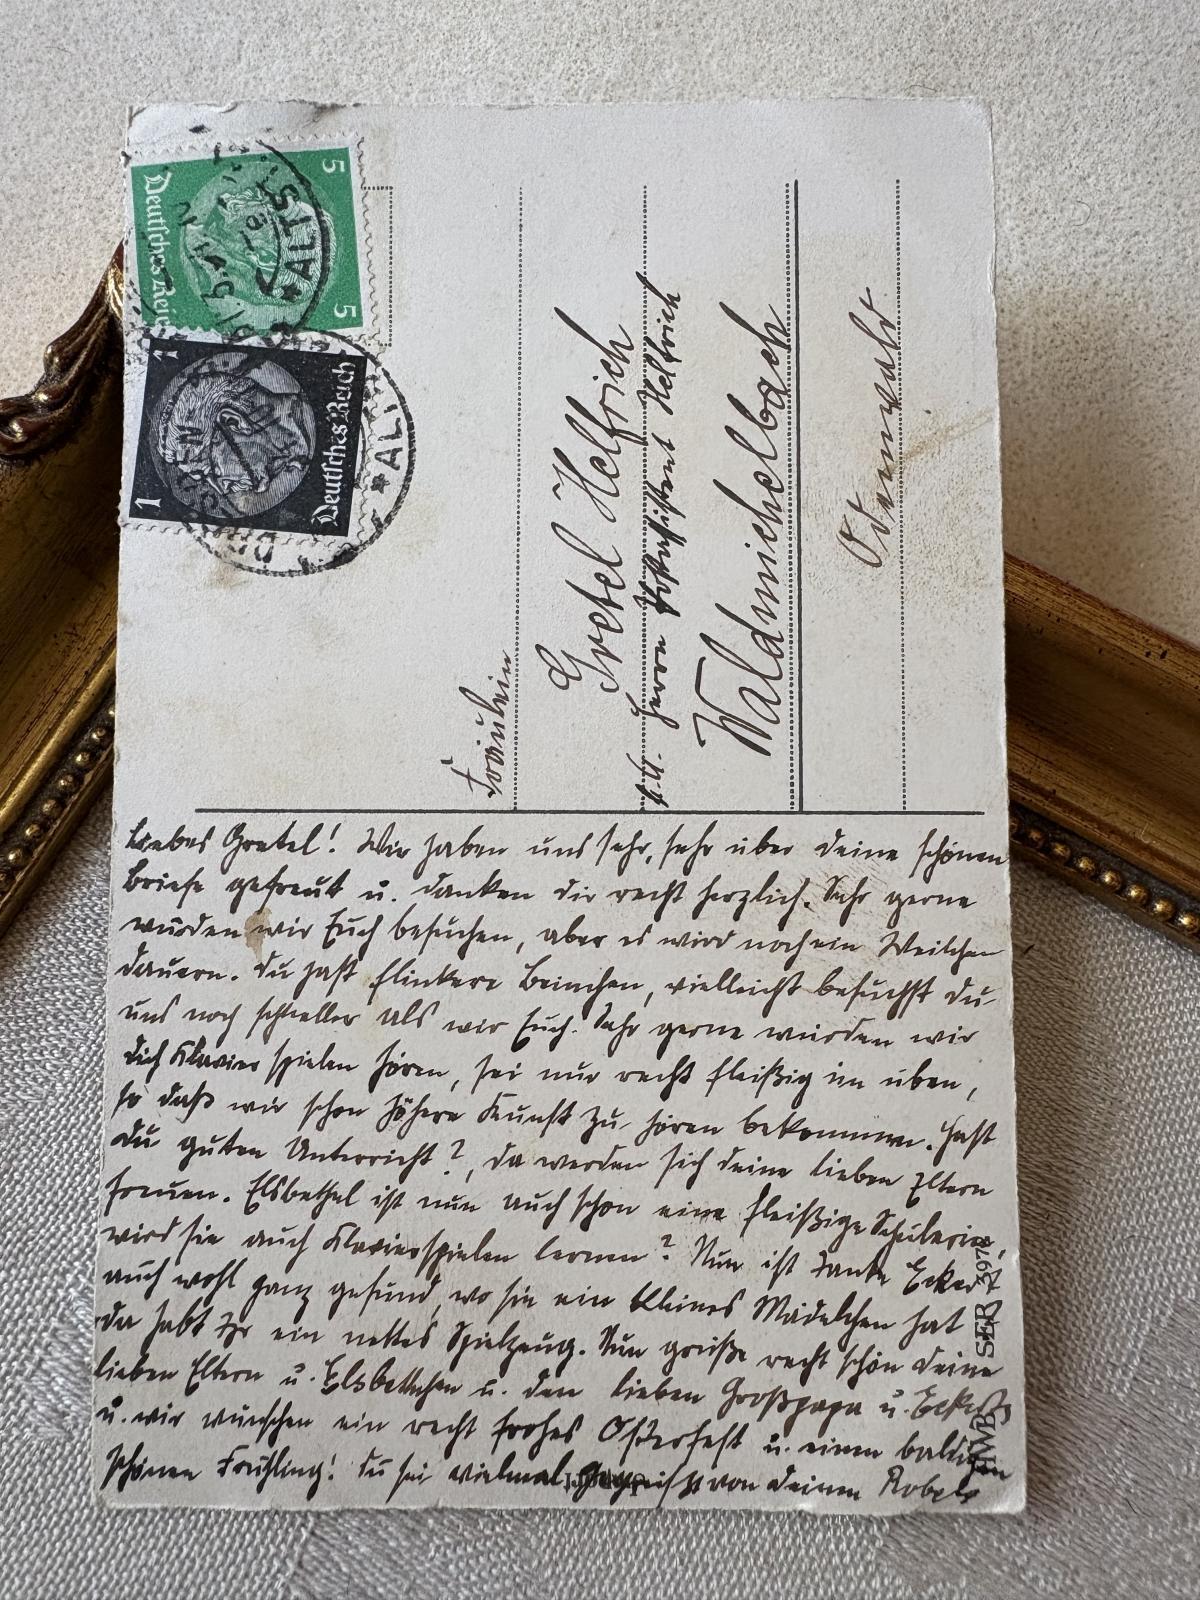 5
5
Deutsches Reich
ALTS
1
1
Deutsches Reich
ALT
Fräulein
Gretel Helfrich
Herrn Postassistent Helfrich
Waldmichelbach
Odenwald
Liebes Gretel! Wir haben uns sehr, sehr über deine schönen
Briefe gefreut u. danken dir recht herzlich. Sehr gerne
würden wir Euch besuchen, aber es wird noch ein Weilchen
dauern. Du hast flinkere Beinchen, vielleicht besuchst du
uns noch schneller als wir Euch. Sehr gerne würden wir
dich Klavierspielen hören, sei nur recht fleißig im üben,
so daß wir schon höhere Kunst zu hören bekommen. Hast
du guten Unterricht?, da werden sich deine lieben Eltern
freuen. Elsbethel ist nun auch schon eine fleißige Schülerin,
wird sie auch Klavierspielen lernen? Nun ist Tante Eckert
auch wohl ganz gesund, wo sie ein kleines Mädelchen hat
da habt Ihr ein nettes Spielzeug. Nun grüße recht schön deine
lieben Eltern u. Elsbethchen u. den lieben Großpapa u. Eckerts
u. wir wünschen ein recht frohes Osterfest u. einen baldigen
schönen Frühling! Du sei vielmal gegrüßt von deinen
SER 3978